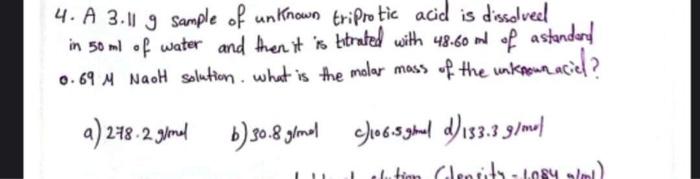 4. A 3.11 g sample of unknown triprotic acid is dissolved
in 50 ml of water and then it is titrated with 48.60 ml of a standard
0.69 M NaOH solution. what is the molar mass of the unknown acid?
a) 278.2 g/mol b) 30.8 g/mol c) 106.5 g/mol d) 133.3 g/mol
(density = 1.084 g/ml)